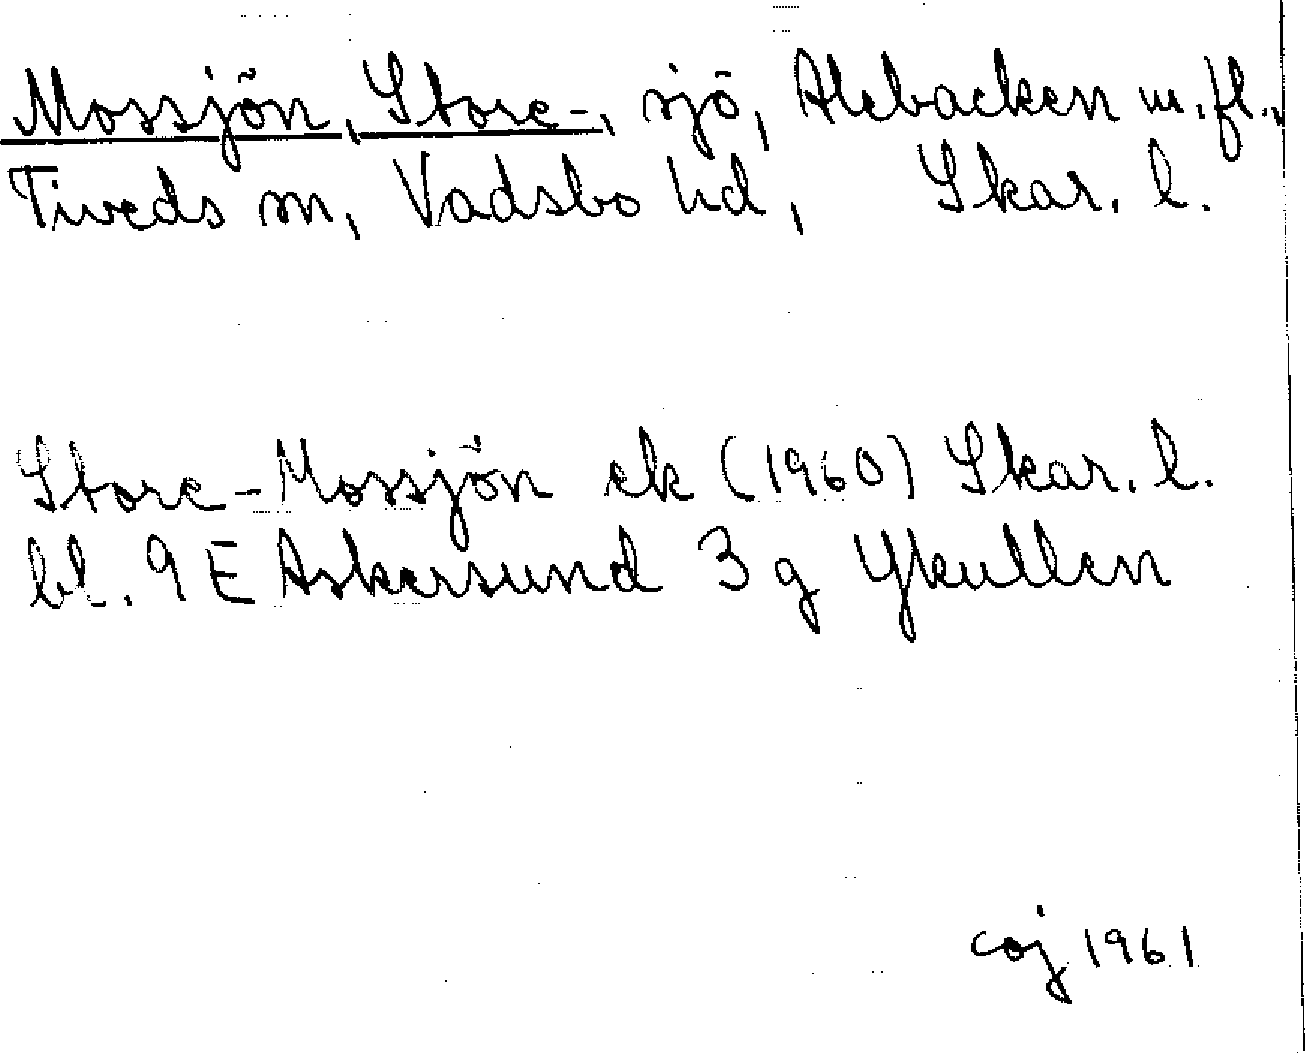 Mossjön, Store-, sjö, Alebacken m.fl.,
Tiveds sn, Vadsbo hd, Skar. l.
Store-Mossjön ek (1960) Skar. l.
bl. 9 E Askersund 3 g Ykullen
coj 1961